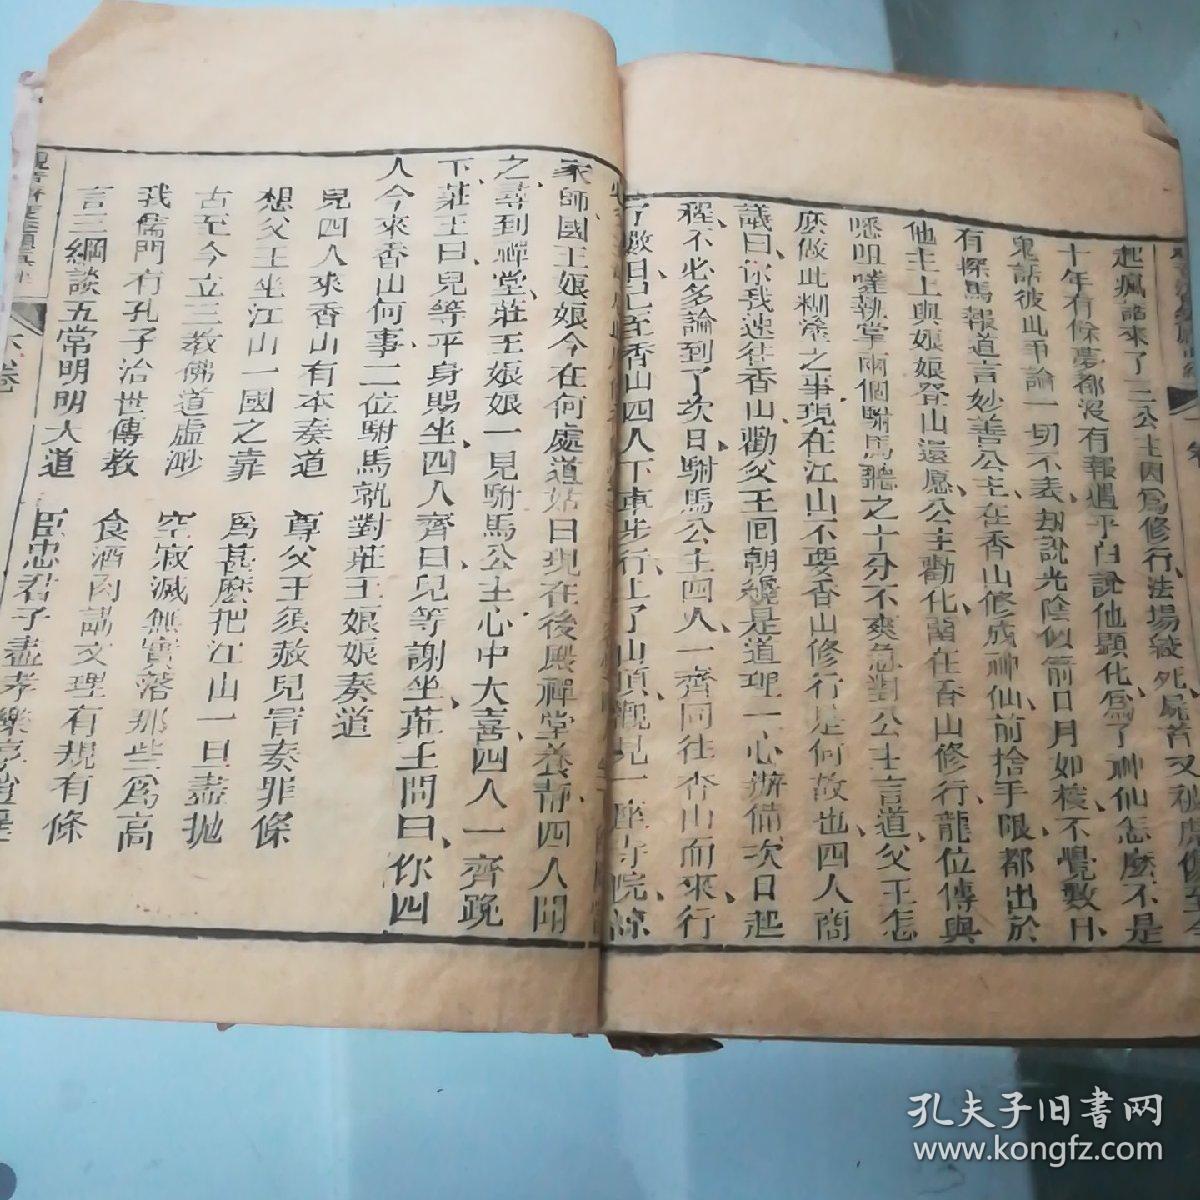 起瘋話來了三公主因爲修行法場絞死屍首又被虎
十年有餘夢都沒有報過乎白說他顯化爲了神仙怎麼不是
鬼話彼此爭論一切不表却說光陰似箭日月如梭不覺數日
有探馬報道言妙善公主在香山修成神仙前捨手眼都出於
他主上與娘娘登山還愿公主勸化留在香山修行龍位傳與
嗟執掌兩個駙馬聽之十分不爽急對公主言道父王怎
麽做此糊塗之事現在江山不要香山修行是何故也四人商
議曰你我速往香山勸父王回朝纔是道理一心辦備次日起
程不必多論到了次日駙馬公主四人一齊同往香山而來行
了數日已至香山四人下車步行上了山頂觀見一座寺院
家師國王娘娘今在何處道姑曰現在後殿禪堂養靜四人聞
之尋到禪堂莊王娘娘一見駙馬公主心中大喜四人一齊跪
下莊王曰兒等平身賜坐四人齊曰兒等謝坐莊王問曰你四
人今來香山何事二位駙馬就對莊王娘娘奏道
兒四人來香山有本奏道 尊父王須赦兒冒奏罪條
想父王坐江山一國之靠 爲甚麽把江山一旦盡抛
古至今立三教佛道虛渺 空寂滅無實落那些爲高
我儒門有孔子治世傳教 食酒肉講文理有規有條
言三綱談五常明明大道 臣忠君子盡孝樂享逍遥
卷
孔夫子旧书网
www.kongfz.com